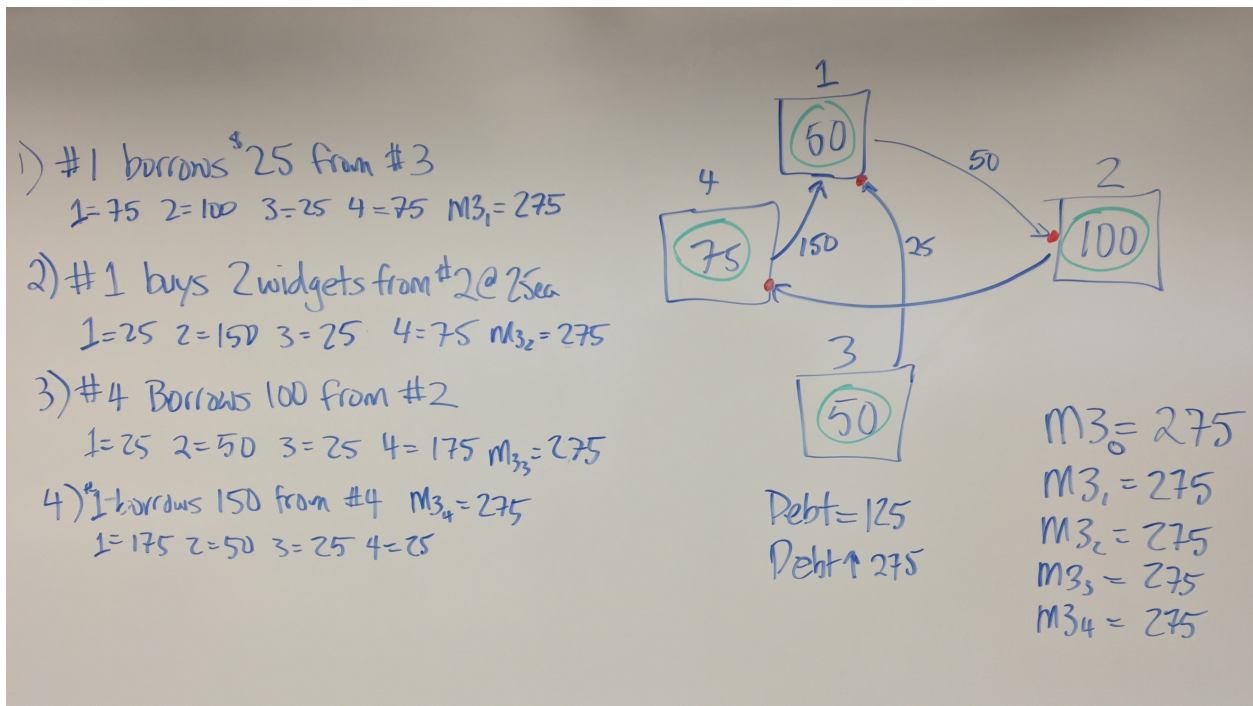 1) #1 borrows $25 from #3
1=75 2=100 3=25 4=75 M3₁=275
2) #1 buys 2 widgets from #2 @ 25ea
1=25 2=150 3=25 4=75 M3₂=275
3) #4 Borrows 100 from #2
1=25 2=50 3=25 4=175 M3₃=275
4) #1 borrows 150 from #4 M3₄=275
1=175 2=50 3=25 4=25
1
50
50
2
100
4
75
150
25
3
50
Debt=125
Debt↑ 275
M3₀=275
M3₁=275
M3₂=275
M3₃=275
M3₄=275